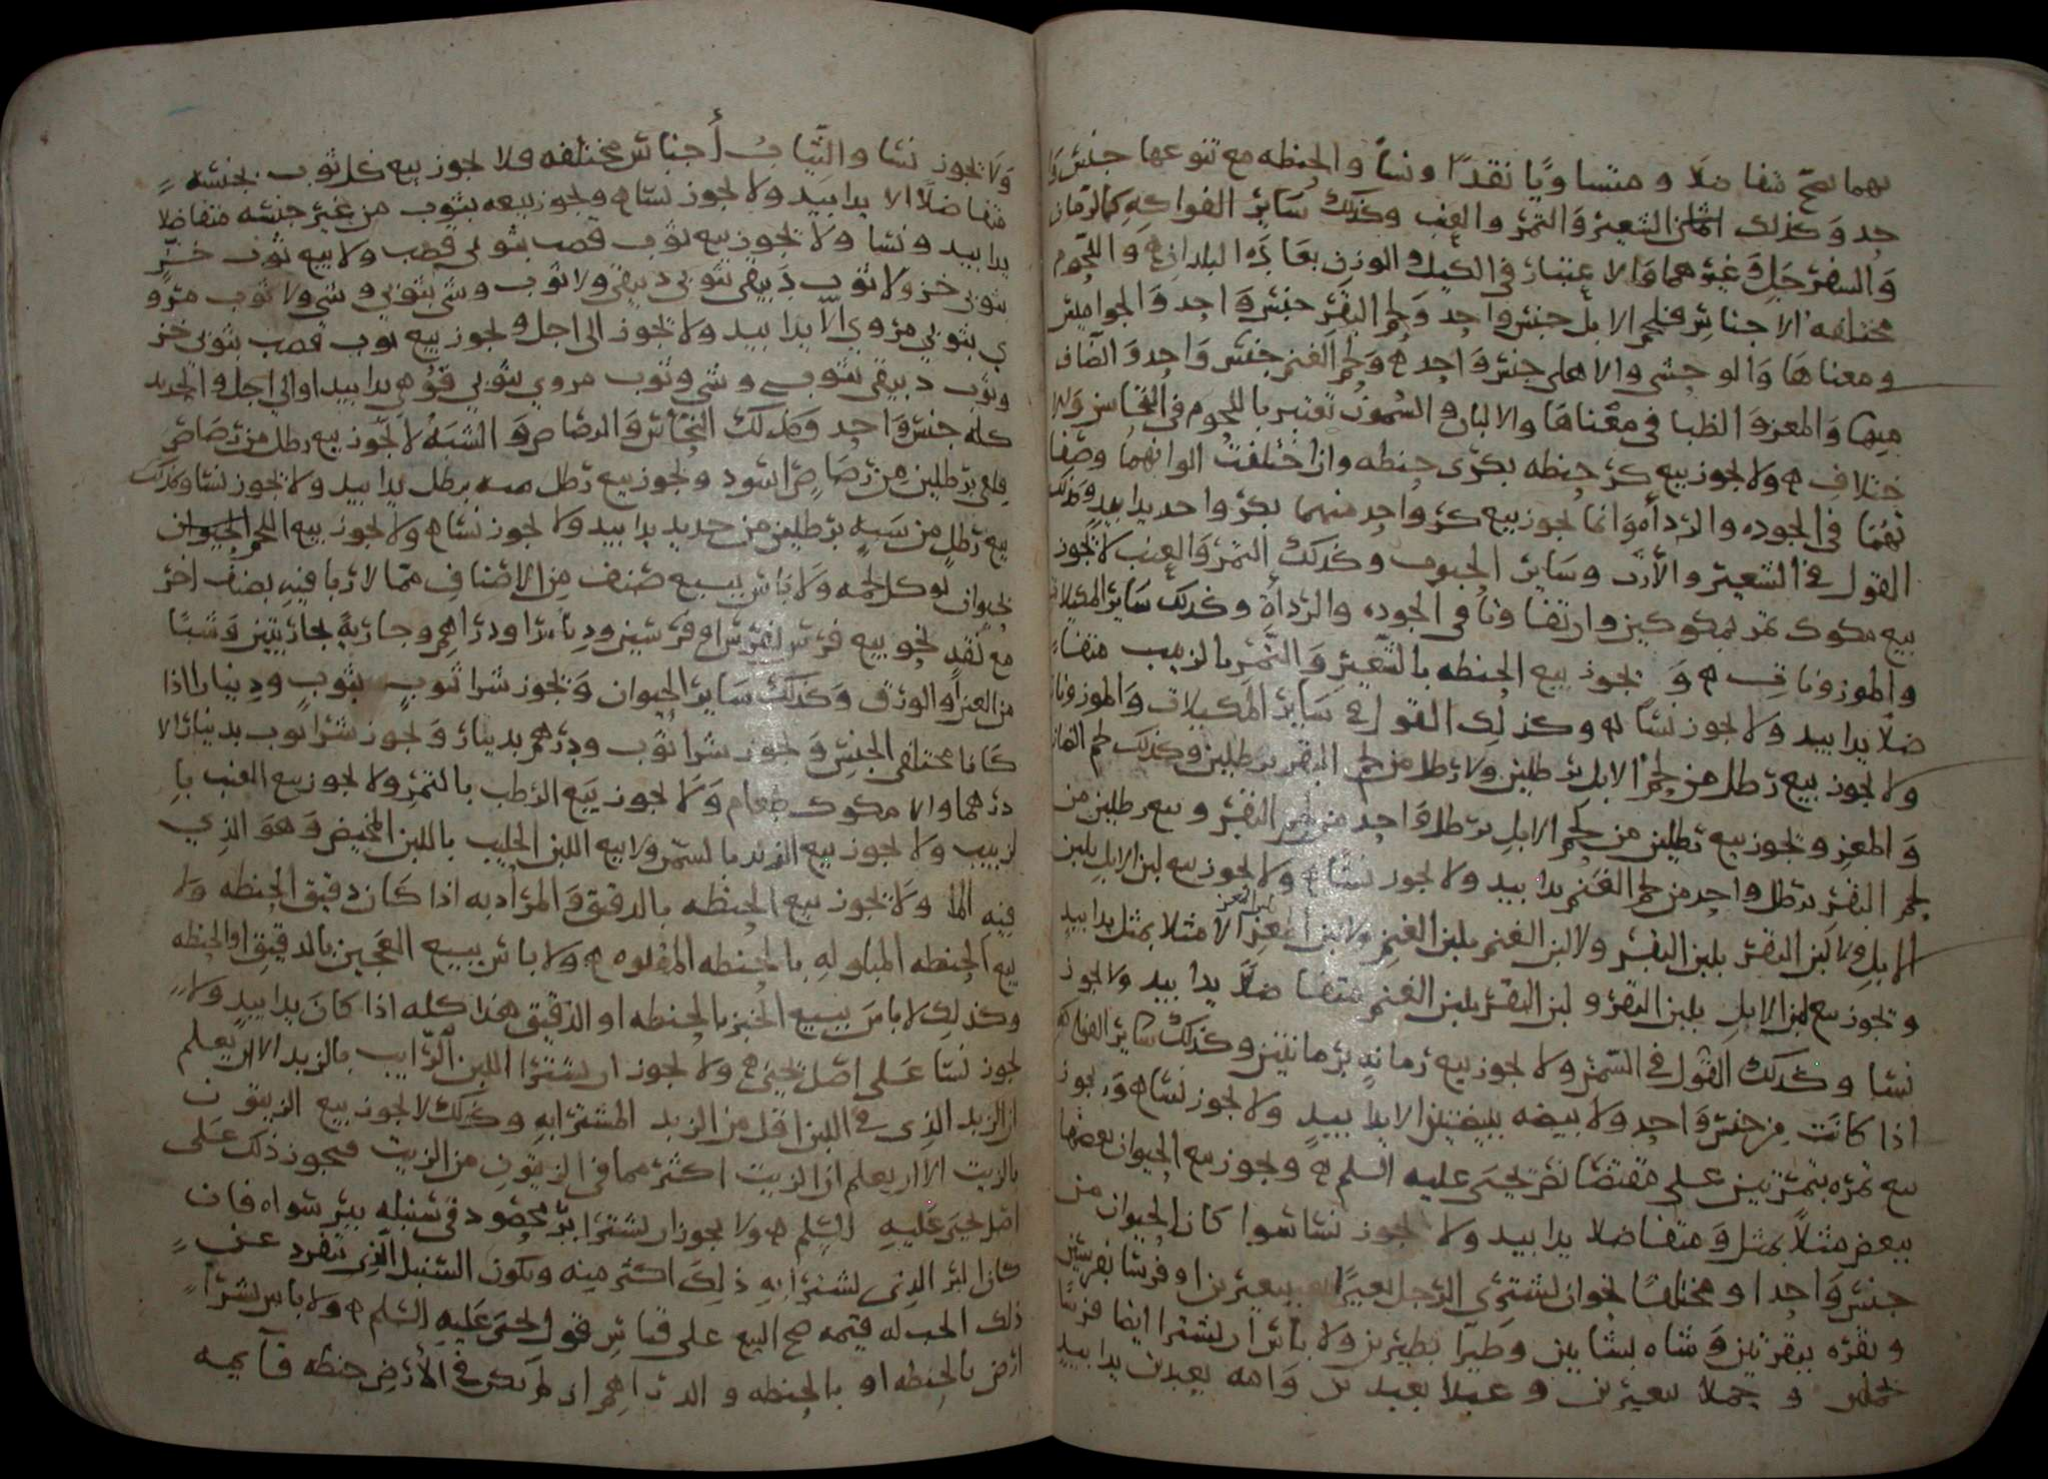 بهما يصح متفاضلا ومتساويا نقدا ونسأ والحنطه مع تنوعها جنس وا
حد وكذلك الشعير والتمر والعنب وكذلك سائر الفواكه كالرمان
والسفرجل وغيرهما والاعتبار في الكيل والوزن بعادة البلدان ه واللحوم
مختلفه الاجناس فلحم الابل جنس واحد ولحم البقر جنس واحد والجواميس
ومعناها والوحشي والاهلي جنس واحد ه ولحم الغنم جنس واحد والضان
منها والمعز والظبا في معناها والالبان والسمون تعتبر باللحوم في
ختلاف ه ولا يجوز بيع كر حنطه بكري حنطه وان اختلفت الوانهما وصفا
تهما في الجوده والرداه وانما يجوز بيع كر واحد منهما بكر واحد يدا بيد وكذلك
القول في الشعير والأرز وسائر الحبوب وكذلك التمر والعنب لا يجوز
بيع مكوك تمر بمكوكين وان تفاوتا في الجوده والرداة وكذلك سائر المكيلات
والموزونات ه و يجوز بيع الحنطه بالشعير والتمر بالزبيب متفا
ضلا يدا بيد ولا يجوز نسا ه وكذلك القول في سائر المكيلات والموزونات
ولا يجوز بيع رطل من لحم الابل برطلين ولا رطل من لحم البقر برطلين وكذلك لحم الضان
والمعز ويجوز بيع رطلين من لحم الابل برطل واحد من لحم البقر وبيع رطلين من
لحم البقر برطل واحد من لحم الغنم يدا بيد ولا يجوز نسا ه ولا يجوز بيع لبن الابل بلبن
الابل ولا لبن البقر بلبن البقر ولا لبن الغنم بلبن الغنم ولا لبن المعز الا مثلا بمثل يدا بيد
ويجوز بيع لبن الابل بلبن البقر ولبن البقر بلبن الغنم متفاضلا يدا بيد ولا يجوز
نسا وكذلك القول في السمن ولا يجوز بيع رمانه برمانتين وكذلك سائر الفواكه
اذا كانت من جنس واحد ولا بيضه ببيضتين الا يدا بيد ولا يجوز نسا ه ويجوز
بيع تمره بتمرتين على مقتضا نص يحيى عليه السلم ه ويجوز بيع الحيوان بعضها
ببعض مثلا بمثل ومتفاضلا يدا بيد ولا يجوز نسا سوا كان الحيوان من
جنس واحد او مختلفا نحو ان يشتري الرجل بعيرا ببعيرين او فرسا بفرسين
وبقره ببقرتين وشاه بشاتين وطيرا بطيرين ولا باس ان يشترا ايضا فرسا
بجملين و جملا ببعيرين وعبدا بعبدين وامه بعبدين يدا بيد
ولا يجوز نسا والثياب أجناس مختلفه فلا يجوز بيع كل ثوب بجنسه
متفاضلا الا يدا بيد ولا يجوز نسا ه ويجوز بيعه بثوب من غير جنسه متفاضلا
يدا بيد ونسا ولا يجوز بيع ثوب قصب بثوبي قصب ولا بيع ثوب خز
بثوبي خز ولا ثوب دبيقي بثوبي دبيقي ولا ثوب وشي بثوبي وشي ولا ثوب مرو
ي بثوبي مروي الا يدا بيد ولا يجوز الى اجل ويجوز بيع ثوب قصب بثوبي خز
وثوب دبيقي بثوب وشي وثوب مروي بثوبي قوهي يدا بيد او الى اجل والحديد
كله جنس واحد وكذلك النحاس والرصاص والشبه لا يجوز بيع رطل من رصاص
قلعي برطلين من رصاص اسود ويجوز بيع رطل منه برطل يدا بيد ولا يجوز نسا وكذلك
بيع رطل من شبه برطلين من حديد يدا بيد ولا يجوز نسا ه ولا يجوز بيع اللحم الحيوان
بحيوان يوكل لحمه ولا باس ببيع صنف من الاصناف مما لا ربا فيه بصنف اخر
مع نقد نحو بيع فرس بفرس او فرسين ودنانير او دراهم وجاريه بجاريتين وشيا
من العين او الورق وكذلك سائر الحيوان ويجوز شرا ثوب بثوب ودينارا اذا
كانا مختلفي الجنس ويجوز شرا ثوب ودرهم بدينار ويجوز شرا ثوب بدينار الا
درهما والا مكوك طعام ولا يجوز بيع الرطب بالتمر ولا يجوز بيع العنب با
لزبيب ولا يجوز بيع الزبد بالسمن ولا بيع اللبن الحليب باللبن المخيض وهو الذي
فيه الما ولا يجوز بيع الحنطه بالدقيق والمراد به اذا كان دقيق الحنطه ولا
بيع الحنطه المبلوله بالحنطه المقلوه ه ولا باس ببيع العجين بالدقيق او الحنطه
وكذلك لا باس ببيع الخبز بالحنطه او الدقيق هذا كله اذا كان يدا بيد ولا
يجوز نسا على اصل يحيى ه ولا يجوز ان يشترا اللبن الرايب بالزبد الا ان يعلم
ان الزبد الذي في اللبن اقل من الزبد المشترا به وكذلك لا يجوز بيع الزيتون
بالزيت الا ان يعلم ان الزيت اكثر مما في الزيتون من الزيت فيجوز ذلك على
اصل يحيى عليه السلم ه ولا يجوز ان يشترا بر محصود في سنبله ببر سواه فان
كان البر الذي يشترا به ذلك اكثر منه ويكون السنبل الذي ينفرد عن
ذلك الحب له قيمه صح البيع على قياس قول يحيى عليه السلم ه ولا باس بشرا
ارض بالحنطه او بالحنطه والدراهم ان لم يكن في الأرض حنطه قايمه